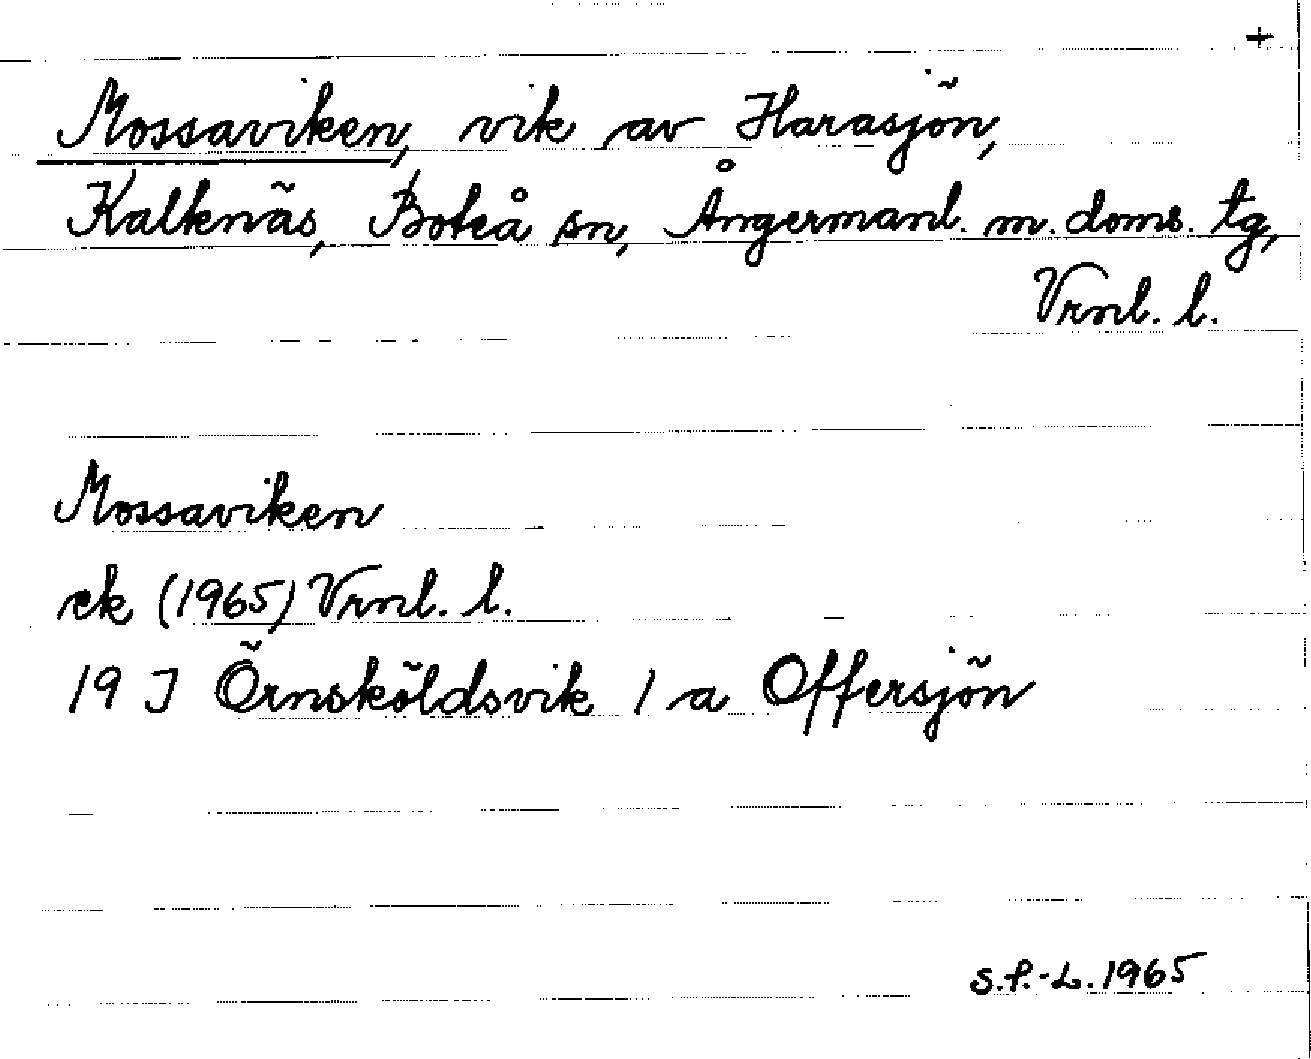 +
Mossaviken, vik av Harasjön,
Kalknäs, Boteå sn, Ångermanl. m. doms. tg,
Vrnl. l.
Mossaviken
ek (1965) Vrnl. l.
19 J Örnsköldsvik 1 a Offersjön
S.P.-L. 1965